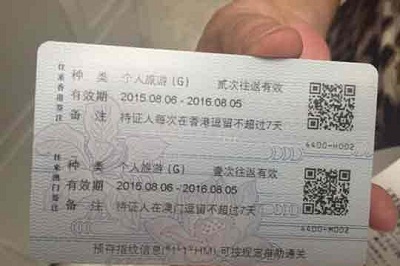 往来香港签注
种 类 个人旅游(G) 贰次往返有效
有效期 2015.08.06 - 2016.08.05
备 注 持证人每次在香港逗留不超过7天
4400-H002
往来澳门签注
种 类 个人旅游(G) 壹次往返有效
有效期 2015.08.06 - 2016.08.05
备 注 持证人在澳门逗留不超过7天
4400-H002
预存指纹信息 可按规定自助通关